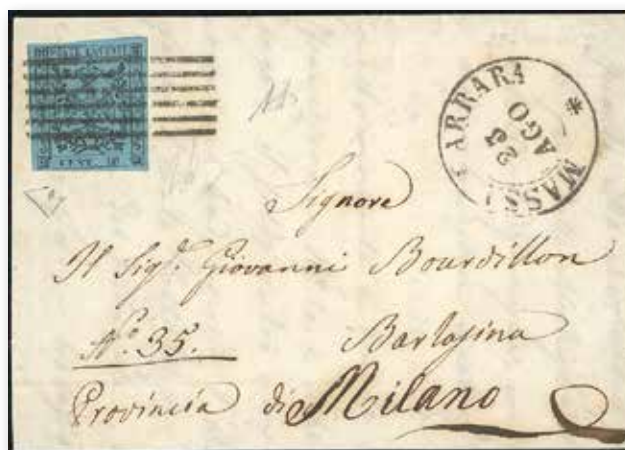 MASSA CARRARA
23
AGO
Signore
Il Sigr. Giovanni Bourdillon
No. 35. Barlasina
Provincia di Milano